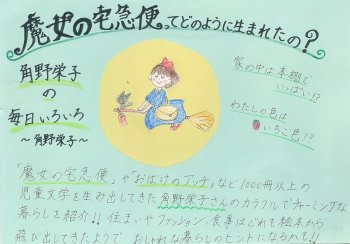 魔女の宅急便ってどのように生まれたの?
角野栄子
の
毎日いろいろ
~角野栄子~
家の中は本棚で
いっぱい!?
わたしの色は
いちご色!?
「魔女の宅急便」や「おばけのアッチ」など1000冊以上の
児童文学を生み出してきた角野栄子さんのカラフルでチャーミングな
暮らしを紹介!!住まいやファッション、食事はどれも絵本から
飛び出してきたようで、おしゃれな暮らしのヒントになるかも!!